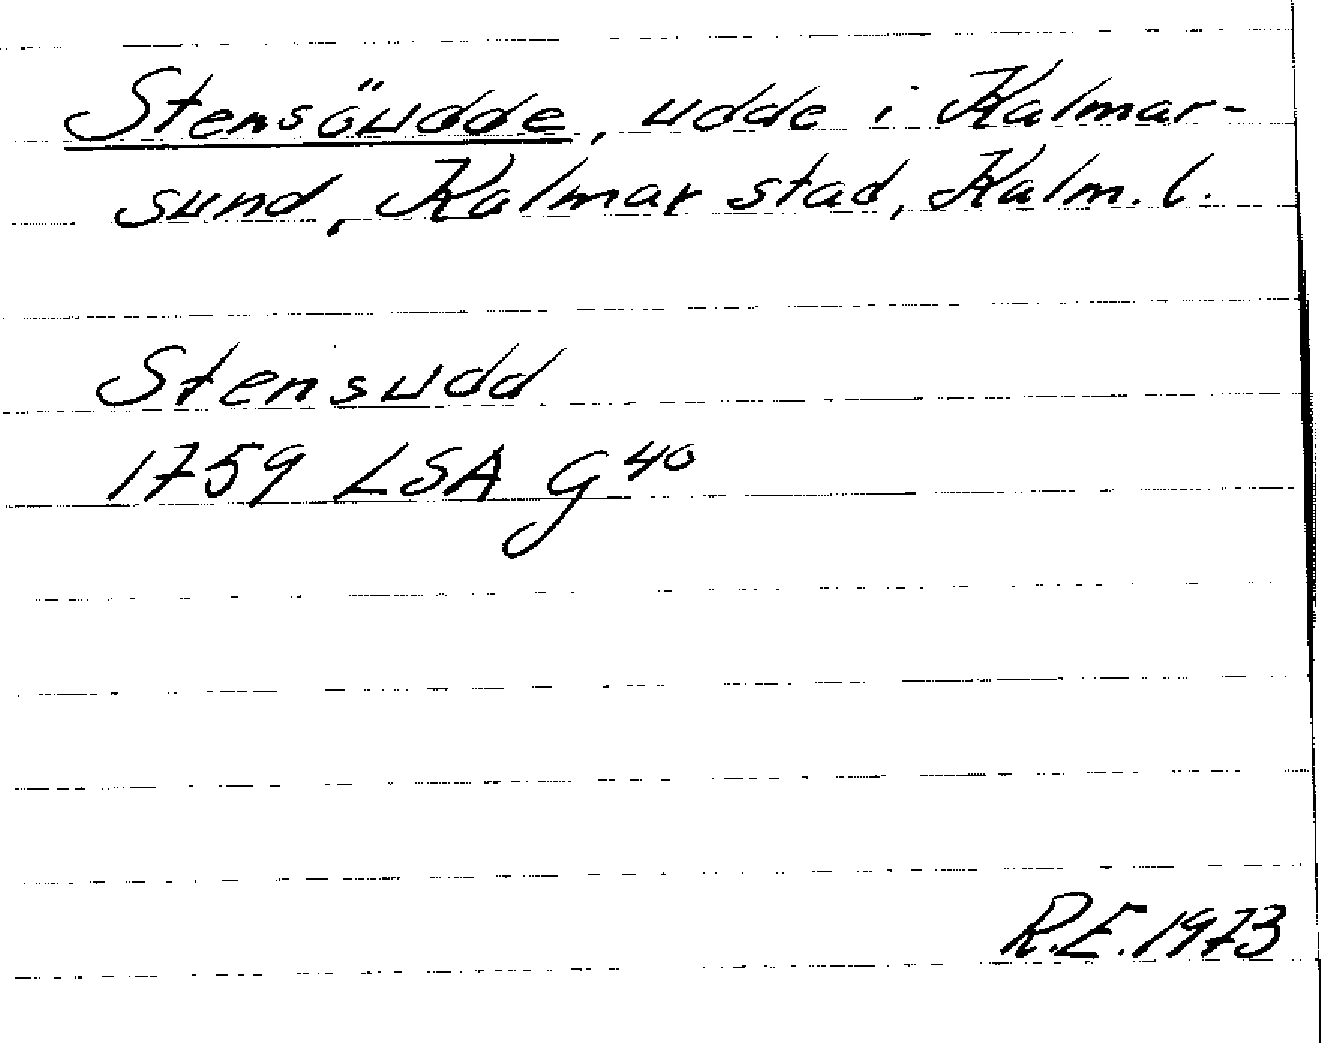 Stensöudde, udde i Kalmar-
sund, Kalmar stad, Kalm. l.
Stensudd
1759 LSA G 40
R.E. 1973